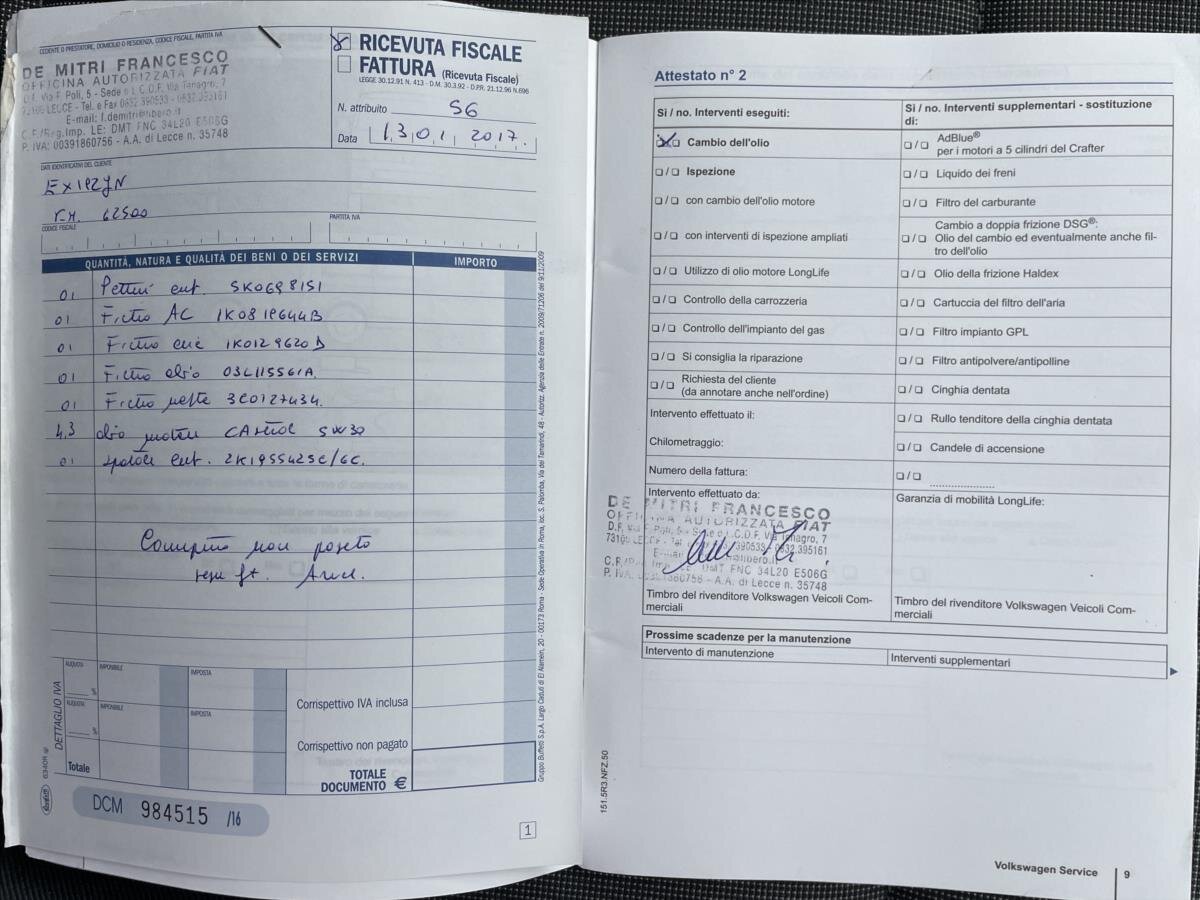 CEDENTE O PRESTATORE, DOMICILIO O RESIDENZA, CODICE FISCALE, PARTITA IVA
DE MITRI FRANCESCO
OFFICINA AUTORIZZATA FIAT
D.F. Via F. Poli, 5 - Sede e L.C.D.F. Via Tanagro, 7
73100 LECCE - Tel. e Fax 0832 390533 - 0832.395161
E-mail: f.demitri@libero.it
C.F./Reg.Imp. LE: DMT FNC 34L20 E506G
P. IVA: 00391860756 - A.A. di Lecce n. 35748
RICEVUTA FISCALE
FATTURA (Ricevuta Fiscale)
LEGGE 30.12.91 N. 413 - D.M. 30.3.92 - D.P.R. 21.12.96 N.696
N. attribuito 56
Data 13 01 2017.
DATI IDENTIFICATIVI DEL CLIENTE
EX182YN
K.M. 62500
CODICE FISCALE
PARTITA IVA
QUANTITÀ, NATURA E QUALITÀ DEI BENI O DEI SERVIZI IMPORTO
01 ant. 5K0698151
01 Filtro AC 1K0819644B
01 Filtro 1K0129620D
01 Filtro olio 03L115561A
01 Filtro 3C0127434.
4.3 olio motore 5W30
01 ant. 2K1955425C/6C.
non
DETTAGLIO IVA
ALIQUOTA IMPONIBILE IMPOSTA
%
ALIQUOTA IMPONIBILE IMPOSTA
%
Totale
Corrispettivo IVA inclusa
Corrispettivo non pagato
TOTALE
DOCUMENTO €
DCM 984515 /16
1
Gruppo Buffetti S.p.A. Largo Caduti di El Alamein, 20 - 00173 Roma - Sede Operativa in Roma, loc. S. Palomba, Via dei Tamarindi, 48 - Autorizz. Agenzia delle Entrate n. 2009/71206 del 9/11/2009
Attestato n° 2
Sì / no. Interventi eseguiti:
Cambio dell'olio
Ispezione
con cambio dell'olio motore
con interventi di ispezione ampliati
Utilizzo di olio motore LongLife
Controllo della carrozzeria
Controllo dell'impianto del gas
Si consiglia la riparazione
Richiesta del cliente
(da annotare anche nell'ordine)
Intervento effettuato il:
Chilometraggio:
Numero della fattura:
Intervento effettuato da:
DE MITRI FRANCESCO
OFFICINA AUTORIZZATA FIAT
D.F. Via F. Poli, 5 - Sede e L.C.D.F. Via Tanagro, 7
73100 LECCE - Tel. 390533 - 0832.395161
E-mail libero.it
DMT FNC 34L20 E506G
P. IVA - A.A. di Lecce n. 35748
Timbro del rivenditore Volkswagen Veicoli Com-
merciali
Sì / no. Interventi supplementari - sostituzione
di:
AdBlue®
per i motori a 5 cilindri del Crafter
Liquido dei freni
Filtro del carburante
Cambio a doppia frizione DSG®:
Olio del cambio ed eventualmente anche fil-
tro dell'olio
Olio della frizione Haldex
Cartuccia del filtro dell'aria
Filtro impianto GPL
Filtro antipolvere/antipolline
Cinghia dentata
Rullo tenditore della cinghia dentata
Candele di accensione
Garanzia di mobilità LongLife:
Timbro del rivenditore Volkswagen Veicoli Com-
merciali
Prossime scadenze per la manutenzione
Intervento di manutenzione
Interventi supplementari
151.5R3.NFZ.50
Volkswagen Service 9